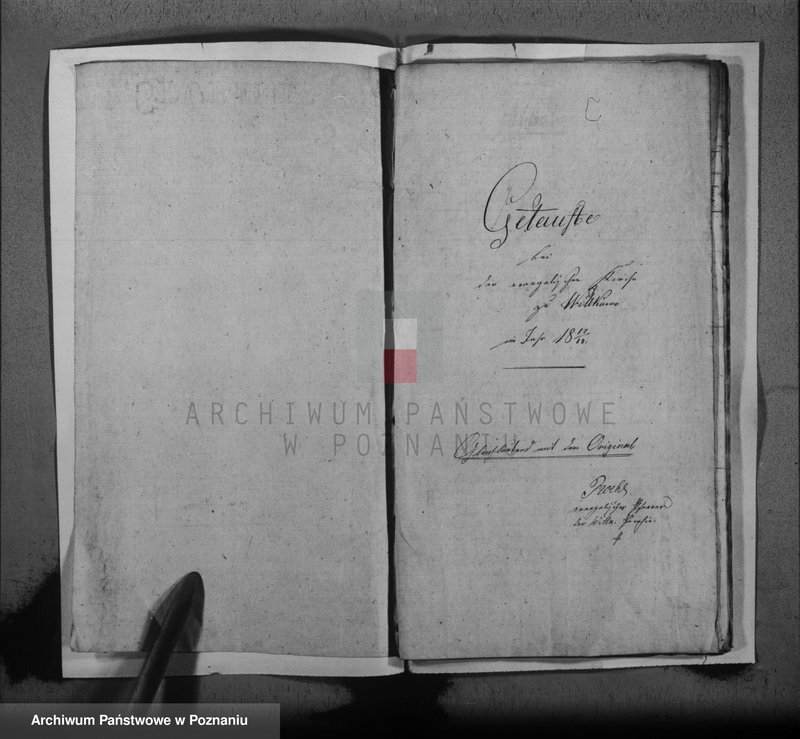 C
Getaufte
bei
der evangelischen Kirche
zu Wittkowo
im Jahr 18 17/18.
ARCHIWUM PAŃSTWOWE
W POZNANIU
Gleichlautend mit dem Original
evangelischer Pfarrer
der Parochie.
Archiwum Państwowe w Poznaniu